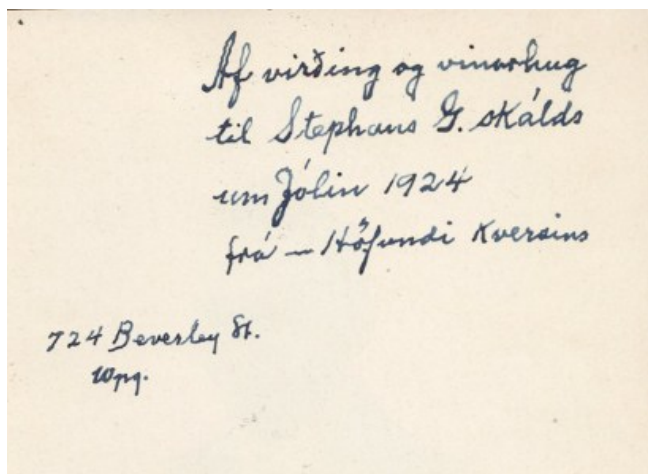 Af virðing og vinarhug
til Stephans G. skálds
um Jólin 1924
frá – Höfundi Kversins
724 Beverley St.
Wpg.